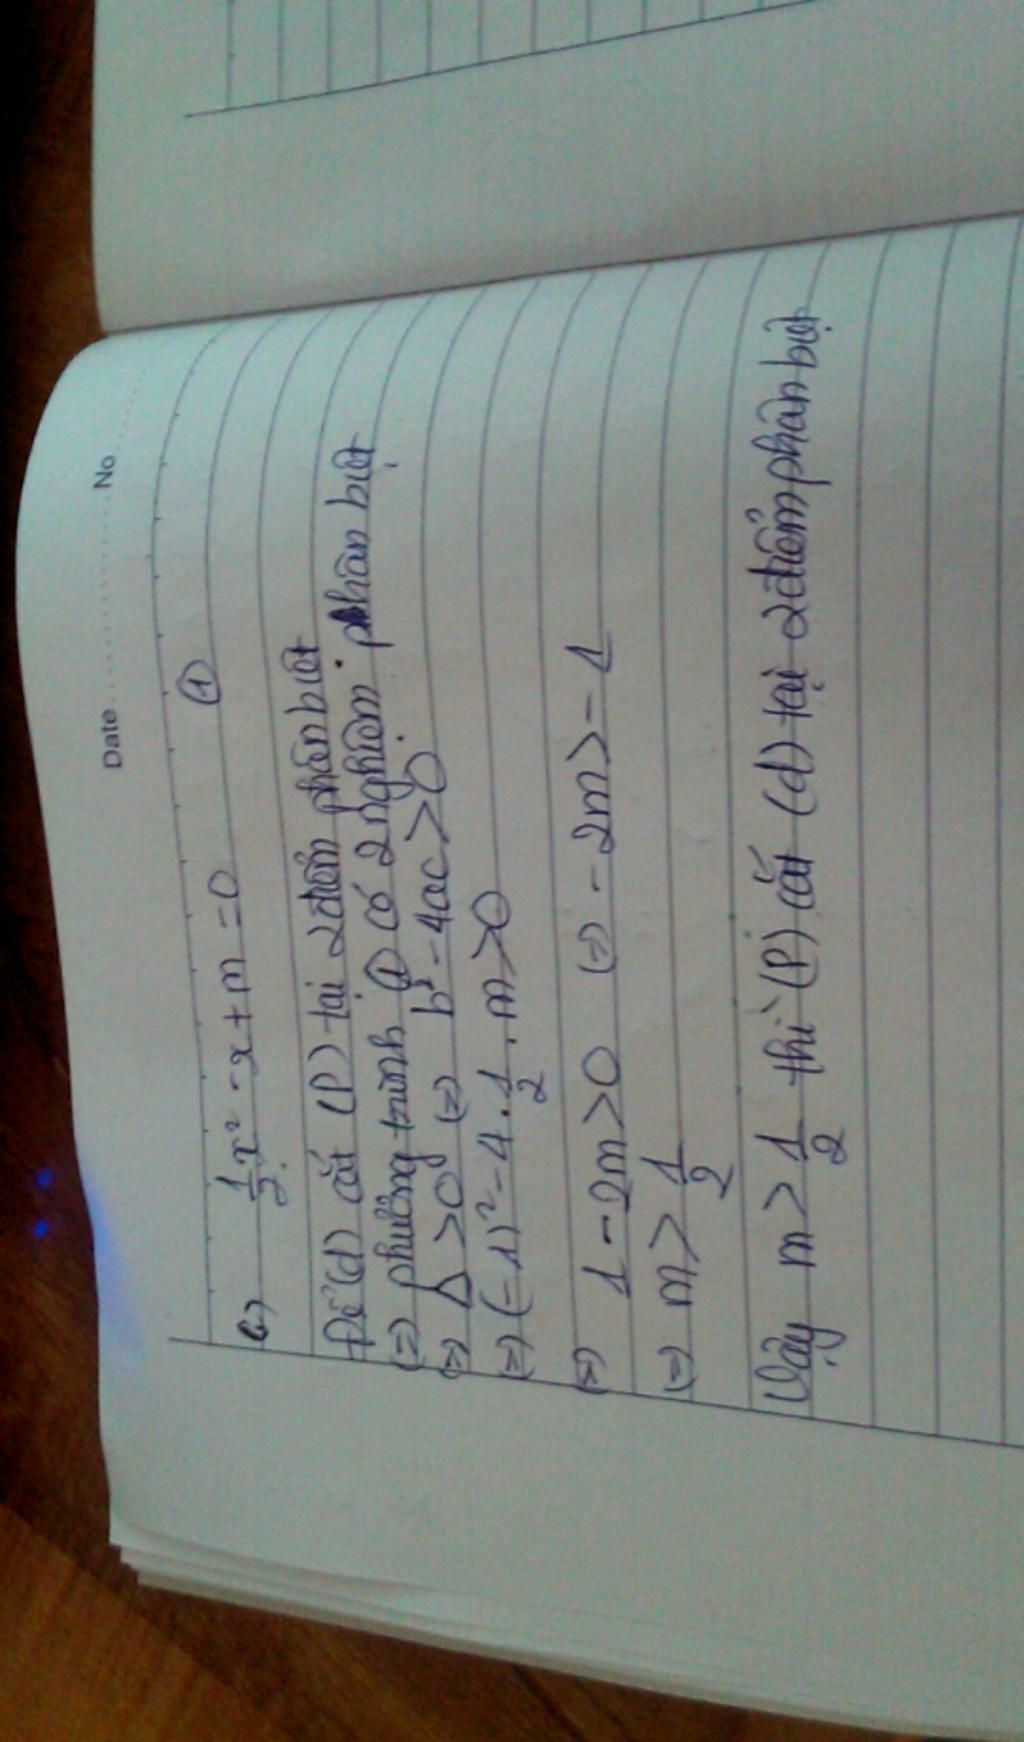 Date No
c) 1/2 x² - x + m = 0 (1)
Để (d) cắt (P) tại 2 điểm phân biệt
(=) phương trình (1) có 2 nghiệm phân biệt
(=) Δ > 0 (=) b² - 4ac > 0
(=) (-1)² - 4 . 1/2 . m > 0
(=) 1 - 2m > 0 (=) - 2m > - 1
(=) m > 1/2
Vậy m > 1/2 thì (P) cắt (d) tại 2 điểm phân biệt